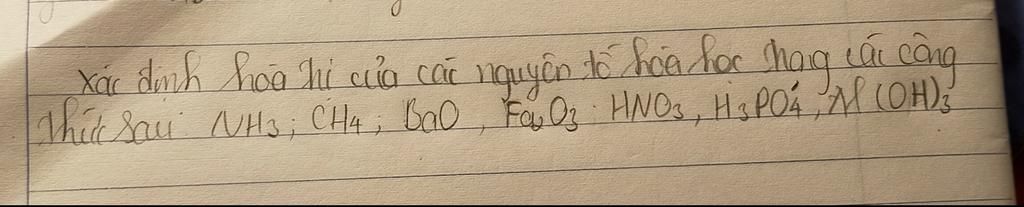 xác định hoá trị của các nguyên tố hóa học trong các công
thức sau: NH₃; CH₄; BaO, Fe₂O₃; HNO₃, H₃PO₄, Al(OH)₃